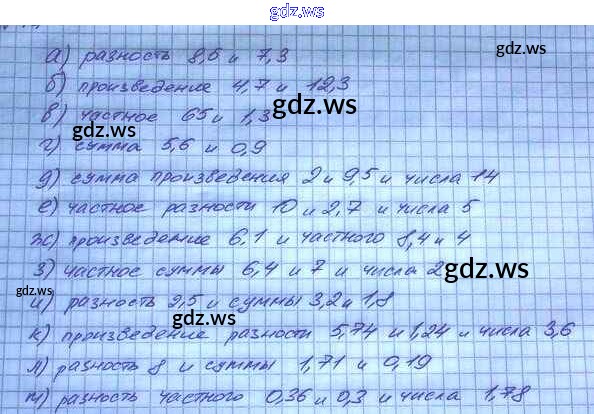 gdz.ws
gdz.ws
а) разность 8,6 и 7,3
б) произведение 4,7 и 12,3
gdz.ws
в) частное 65 и 1,3
gdz.ws
г) сумма 5,6 и 0,9
д) сумма произведения 2 и 9,5 и числа 14
е) частное разности 10 и 2,7 и числа 5
ж) произведение 6,1 и частного 8,4 и 4
з) частное суммы 6,4 и 7 и числа 2
gdz.ws
gdz.ws
и) разность 2,5 и суммы 3,2 и 1,8
gdz.ws
к) произведение разности 5,74 и 1,24 и числа 3,6
л) разность 8 и суммы 1,71 и 0,19
gdz.ws
м) разность частного 0,36 и 0,3 и числа 1,78